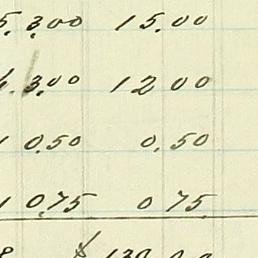 5. 3.00 15.00
4. 3.00 12 00
1 0.50 0.50
1 0.75 0 75
$ 130.00